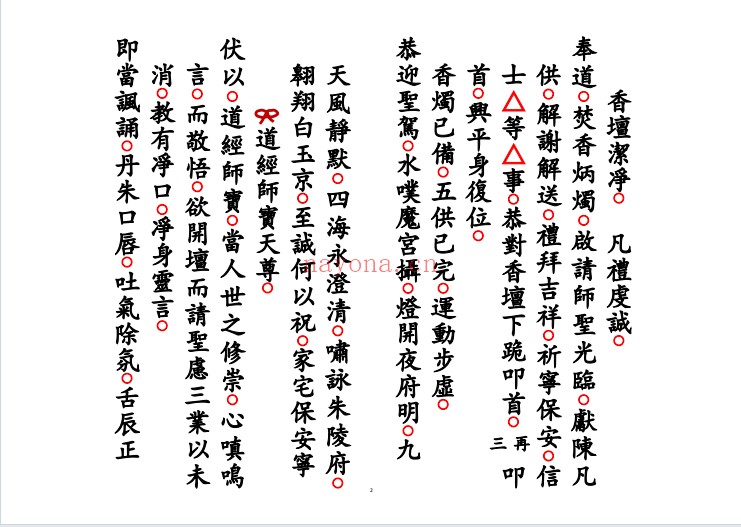 香壇潔淨○ 凡禮虔誠○
奉道○焚香炳燭○啟請師聖光臨○獻陳凡
供○解謝解送○禮拜吉祥○祈寧保安○信
士△等△事○恭對香壇下跪叩首○再三叩
首○興平身復位○
香燭已備○五供已完○運動步虛○
恭迎聖駕○水噗魔宮攝○燈開夜府明○九
天風靜默○四海永澄清○嘯詠朱陵府○
翱翔白玉京○至誠何以祝○家宅保安寧
道經師寶天尊○
伏以○道經師寶○當人世之修崇○心嗔鳴
言○而敬悟○欲開壇而請聖慮三業以未
消○教有凈口○淨身靈言○
即當諷誦○丹朱口唇○吐氣除氛○舌辰正
nayona.cn
2